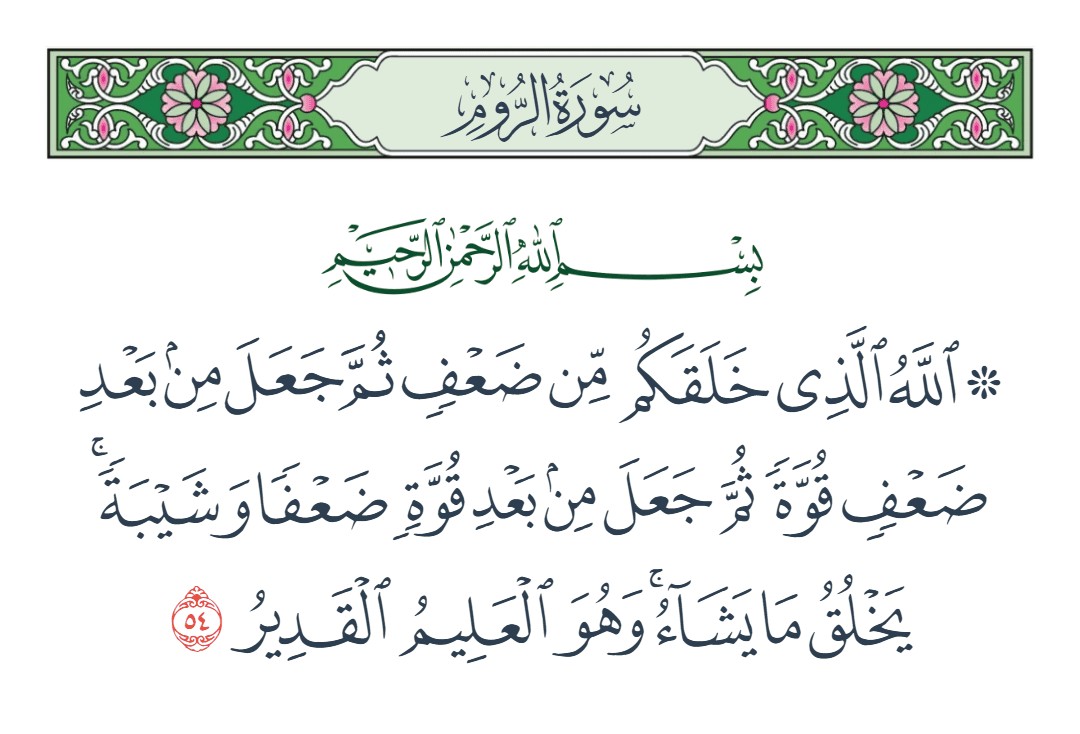 سُورَةُ الرُّومِ
بِسْمِ ٱللَّهِ ٱلرَّحْمَٰنِ ٱلرَّحِيمِ
۞ ٱللَّهُ ٱلَّذِى خَلَقَكُم مِّن ضَعْفٍ ثُمَّ جَعَلَ مِنۢ بَعْدِ
ضَعْفٍ قُوَّةً ثُمَّ جَعَلَ مِنۢ بَعْدِ قُوَّةٍ ضَعْفًا وَشَيْبَةً ۚ
يَخْلُقُ مَا يَشَآءُ ۚ وَهُوَ ٱلْعَلِيمُ ٱلْقَدِيرُ ٥٤